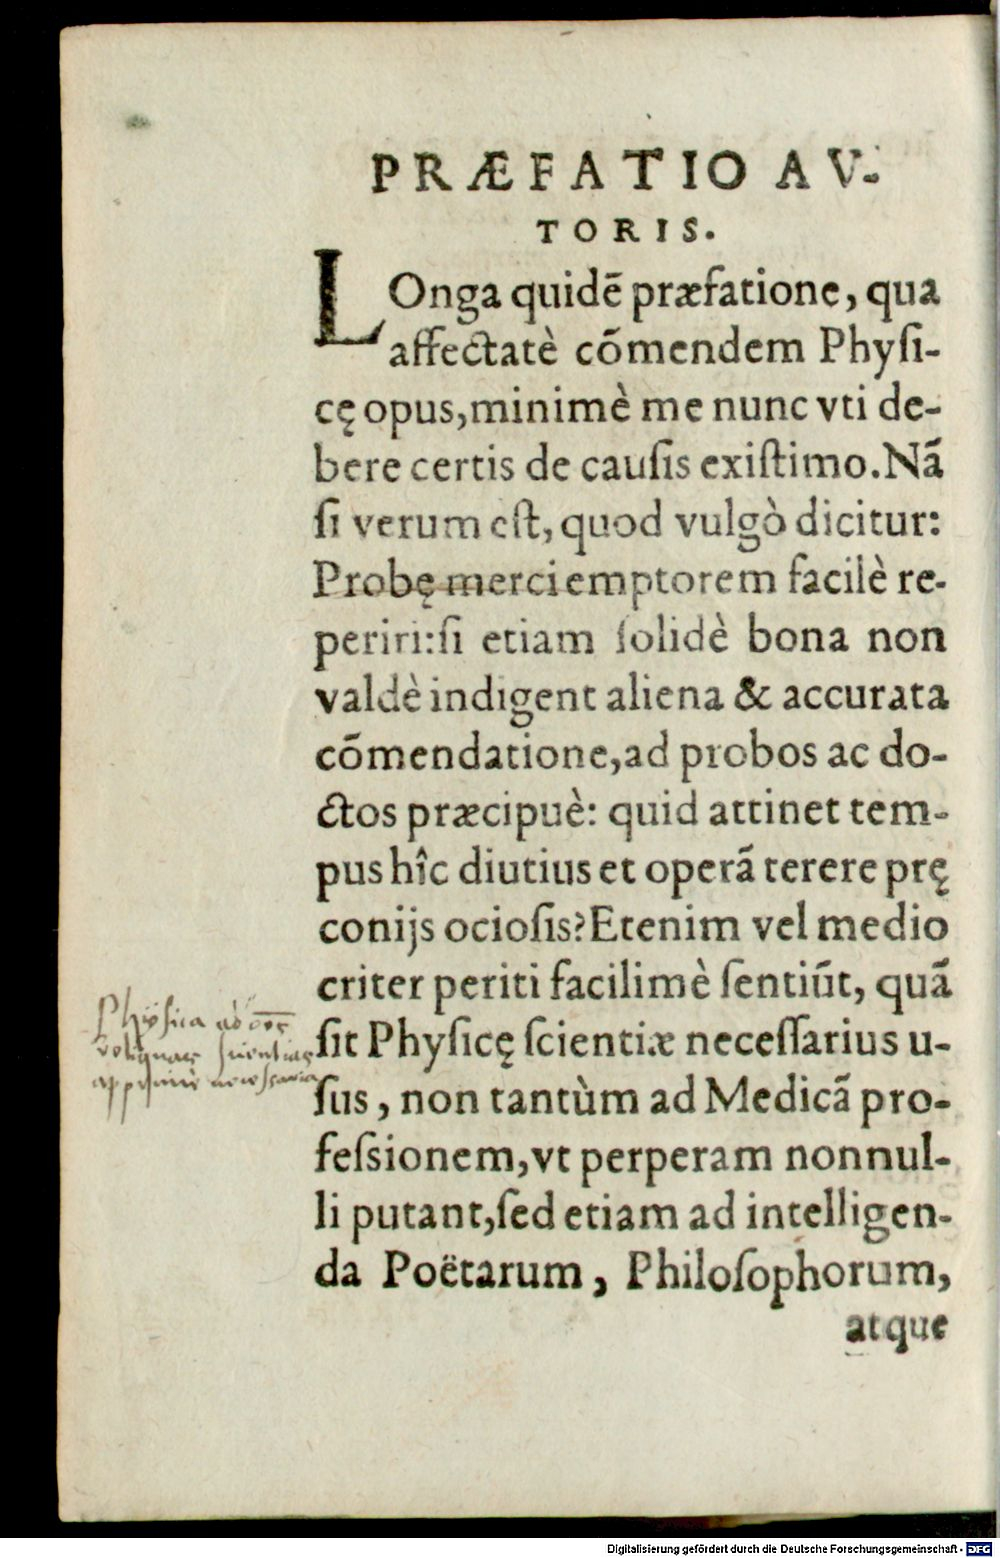 PRÆFATIO AV-
TORIS.
LOnga quidē præfatione, qua
affectatè cōmendem Physi-
cę opus, minimè me nunc vti de-
bere certis de causis existimo. Nā
si verum est, quod vulgò dicitur:
Probę merci emptorem facilè re-
periri: si etiam solidè bona non
valdè indigent aliena & accurata
cōmendatione, ad probos ac do-
ctos præcipuè: quid attinet tem-
pus hîc diutius et operā terere prę
conijs ociosis? Etenim vel medio
criter periti facilimè sentiūt, quā
sit Physicę scientiæ necessarius u-
sus, non tantùm ad Medicā pro-
fessionem, vt perperam nonnul-
li putant, sed etiam ad intelligen-
da Poëtarum, Philosophorum,
atque
Physica ad oēs
reliquas scientias
apprimè necessaria
Digitalisierung gefördert durch die Deutsche Forschungsgemeinschaft - DFG